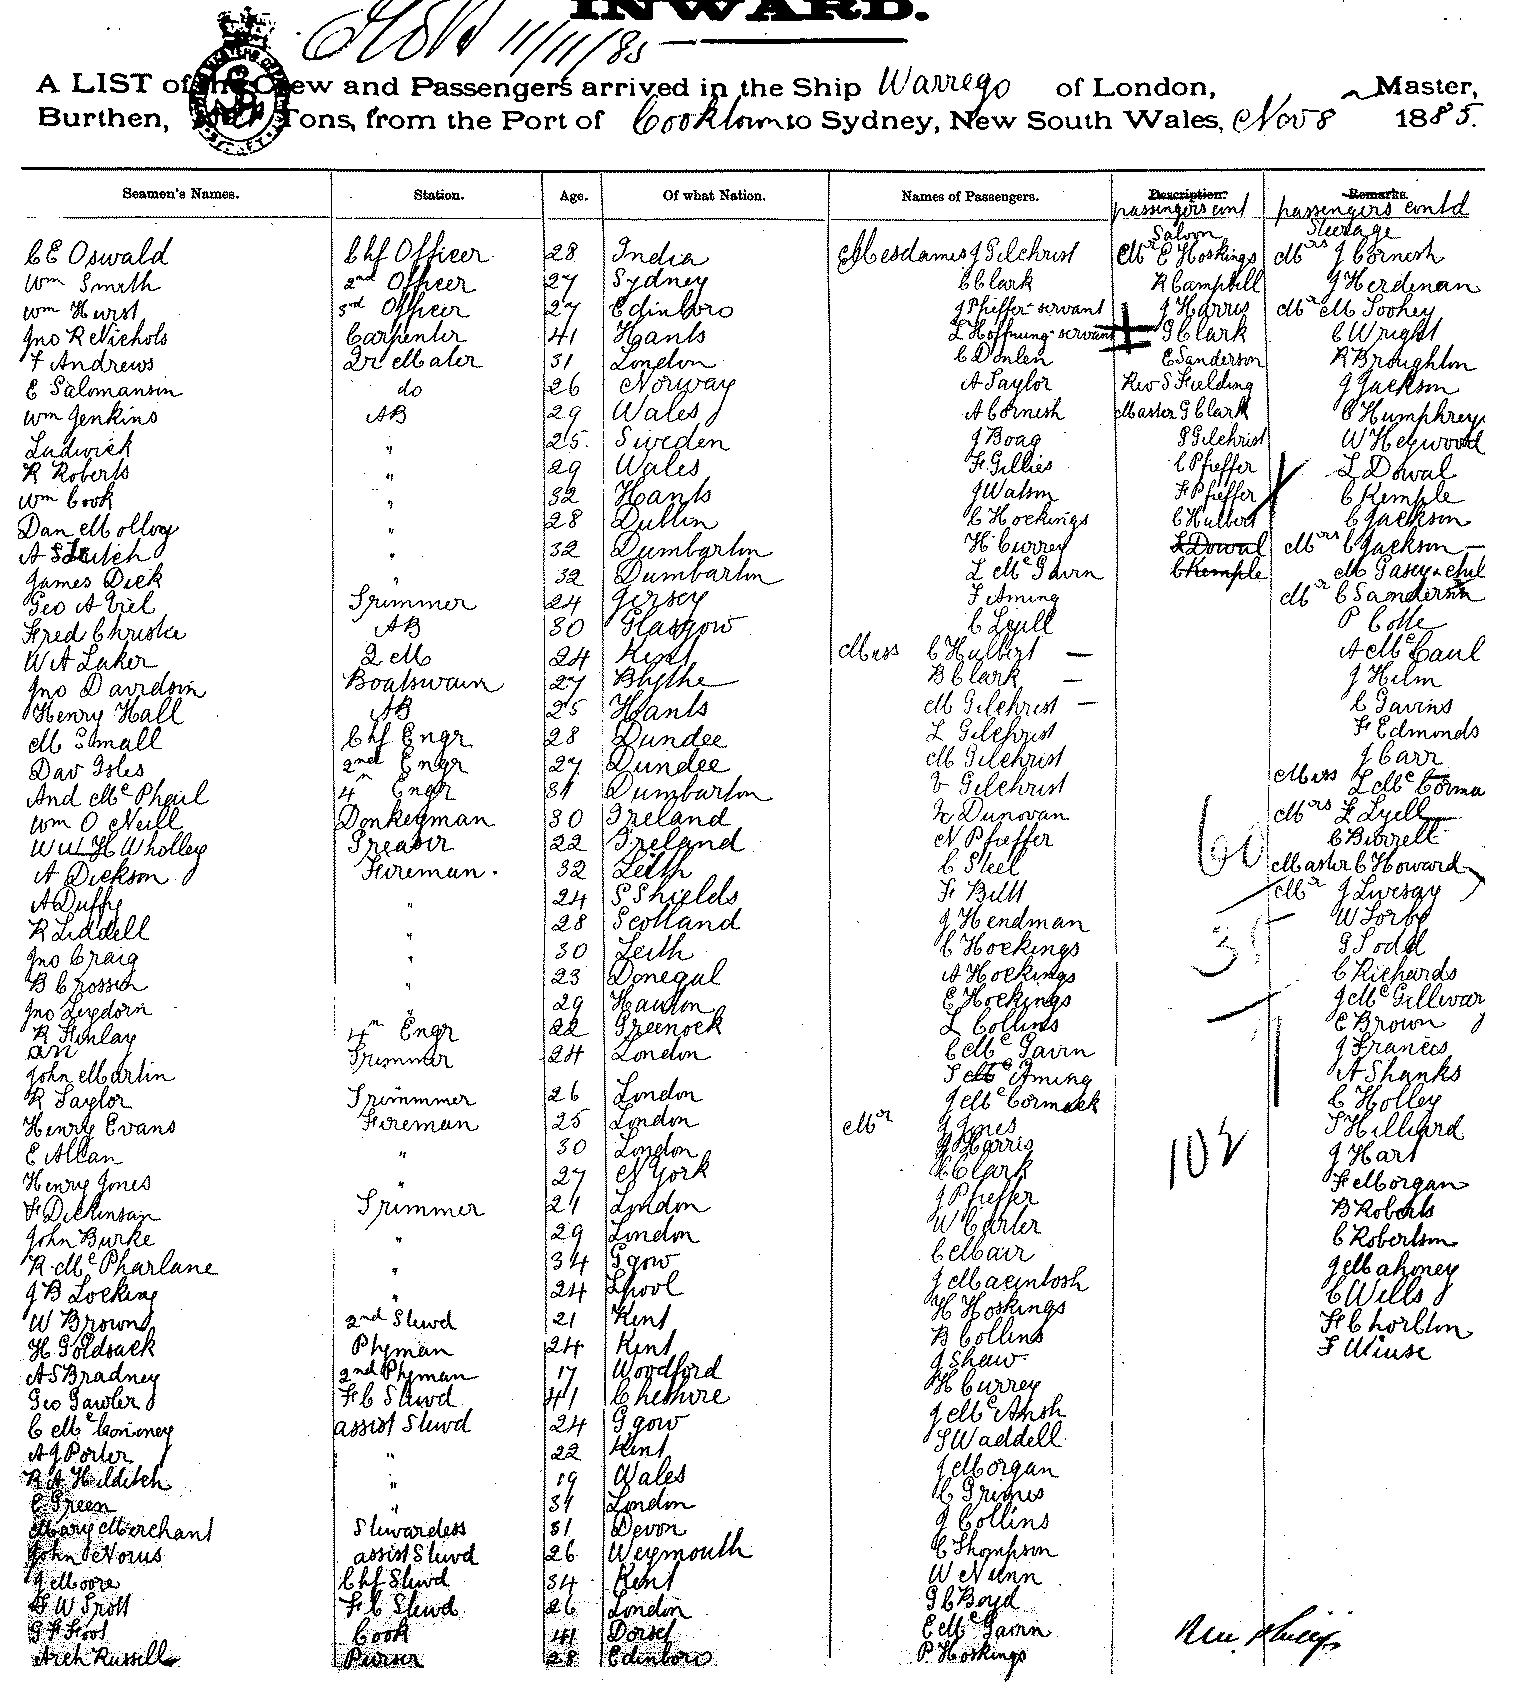 INWARD.
11/11/85
A LIST of the Crew and Passengers arrived in the Ship Warrego of London, Master,
Burthen, Tons, from the Port of Cooktown to Sydney, New South Wales, Nov 8 1885.
Seamen's Names. Station. Age. Of what Nation. Names of Passengers. Description. Remarks.
passengers cont passengers contd
Saloon Steerage
C E Oswald Chf Officer 28 India Mesdames J Gilchrist Mr E Hoskings Mrs J Cornish
Wm Smith 2nd Officer 27 Sydney C Clark R Campbell J Herdman
Wm Hurst 3rd Officer 27 Edinboro J Pfieffer servant J Harris Mr M Toohey
Jno R Nichols Carpenter 41 Hants L Hoffnung servant G Clark C Wright
F Andrews Qr Mater 31 London C Donlen E Sanderson R Broughton
E Salomansin do 26 Norway A Taylor Rev S Fielding J Jackson
Wm Jenkins AB 29 Wales A Cornish Master G Clark C Humphreys
Ludwick " 25 Sweden J Boag S Gilchrist W Heywood
R Roberts " 29 Wales F Gillies C Pfieffer L Dowal
Wm Cook " 32 Hants J Watson F Pfieffer C Kemple
Dan Molloy " 28 Dublin C Hockings C Hulbert C Jackson
A Leitch " 32 Dumbarton H Currey L Dowal Mrs C Jackson
James Dick " 32 Dumbarton L McGavin C Kemple M Casey & chil
Geo A Viel Trimmer 24 Jersey F Aming Mr C Sanderson
Fred Christie AB 30 Glasgow C Lyell P Colle
W A Laker Q M 24 Kent Miss C Hulbert A McCaul
Jno Davidson Boatswain 27 Blythe B Clark J Hilm
Henry Hall AB 25 Hants M Gilchrist C Gavins
M Small Chf Engr 28 Dundee L Gilchrist F Edmonds
Dav Isles 2nd Engr 27 Dundee M Gilchrist J Carr
And McPhail 4th Engr 31 Dumbarton V Gilchrist Miss L McCorma
Wm O Neill Donkeyman 30 Ireland K Dunovan Mrs F Lyell
W H Wholley Greaser 22 Ireland N Pfieffer C Burrell
A Dickson Fireman 32 Leith C Steel Master C Howard
A Duffy " 24 S Shields F Butt Mr J Livesay
R Liddell " 28 Scotland J Hendman W Forbe
Jno Craig " 30 Leith C Hockings G Todd
B Crossin " 23 Donegal A Hockings C Richards
Jno Leydorn " 29 E Hockings J McGillivar
R Finlay 4th Engr 22 Greenock L Collins E Brown
Trimmer 24 London C McGavin J Francis
John Martin S Aming A Shanks
R Taylor Trimmer 26 London J McCormack C Holley
Henry Evans Fireman 25 London Mr J Jones S Hilliard
E Allan " 30 London J Harris J Hart
Henry Jones " 27 N York C Clark F Morgan
F Dickinson Trimmer 21 London J Pfieffer B Roberts
John Burke " 29 London W Carter C Robertson
R McPharlane " 34 Ggow C Mair J Mahoney
J B Locking " 24 Lpool J Macintosh C Wills
W Brown 2nd Stewd 21 Kent H Hoskings F Chorlton
H Goldsack Phyman 24 Kent B Collins
A S Bradney 2nd Phyman 17 Woodford J Shaw
Geo Gawler F C Stewd 41 Cheshire H Currey
C assist Stewd 24 Ggow J McAnsh
A J Porter " 22 Kent S Waddell
R A Hilditch " 19 Wales J Morgan
C Green " 31 London C Grimes
Mary Merchant Stewardess 31 Devon J Collins
John Norris assist Stewd 26 Weymouth C Thompson
J Moore Chf Stewd 34 Kent W Nunn
F W Trott F C Stewd 26 London G C Boyd
G F Foot Cook 41 Dorset E McGavin
Arch Russell Purser 28 Edinboro P Hoskings
60
35
102